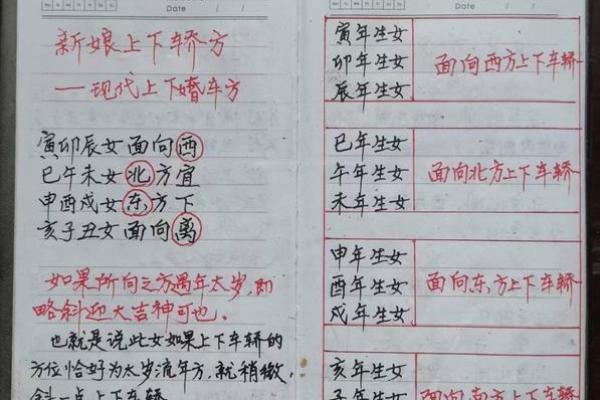 Date
新娘上下轿方
——现代上下婚车方
寅卯辰女面向西
巳午未女北方宜
申酉戌女东方下
亥子丑女面向离
如果所向之方遇年太岁,即
略斜迎大吉神可也。
也就是说此女如果上下车轿的
方位恰好为太岁流年方,就稍微
斜一点上下车轿
Date
寅年生女
卯年生女
辰年生女
面向西方上下车轿
巳年生女
午年生女
未年生女
面向北方上下车轿
申年生女
酉年生女
戌年生女
面向东,方上下车轿
亥年生女
子年生女
面向南方上下车轿